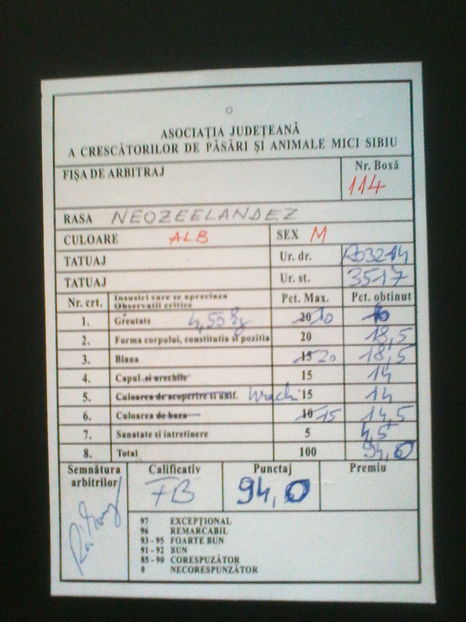 ASOCIAȚIA JUDEȚEANĂ
A CRESCĂTORILOR DE PĂSĂRI ȘI ANIMALE MICI SIBIU
FIȘA DE ARBITRAJ
Nr. Boxă
114
RASA NEOZEELANDEZ
CULOARE ALB SEX M
TATUAJ Ur. dr. RO3214
TATUAJ Ur. st. 3517
Nr. crt. Insusiri care se apreciaza Observatii critice Pct. Max. Pct. obtinut
1. Greutate 4,50 kg 20 10 10
2. Forma corpului, constitutia si pozitia 20 18,5
3. Blana 15 20 18,5
4. Capul si urechile 15 14
5. Culoarea de acoperire si unif. Urechi 15 14
6. Culoarea de baza 10 15 14,5
7. Sanatate si intretinere 5 4,5
8. Total 100 94,0
Semnătura arbitrilor Calificativ Punctaj Premiu
FB 94,0
97 EXCEPȚIONAL
96 REMARCABIL
93 - 95 FOARTE BUN
91 - 92 BUN
85 - 90 CORESPUZĂTOR
0 NECORESPUNZĂTOR